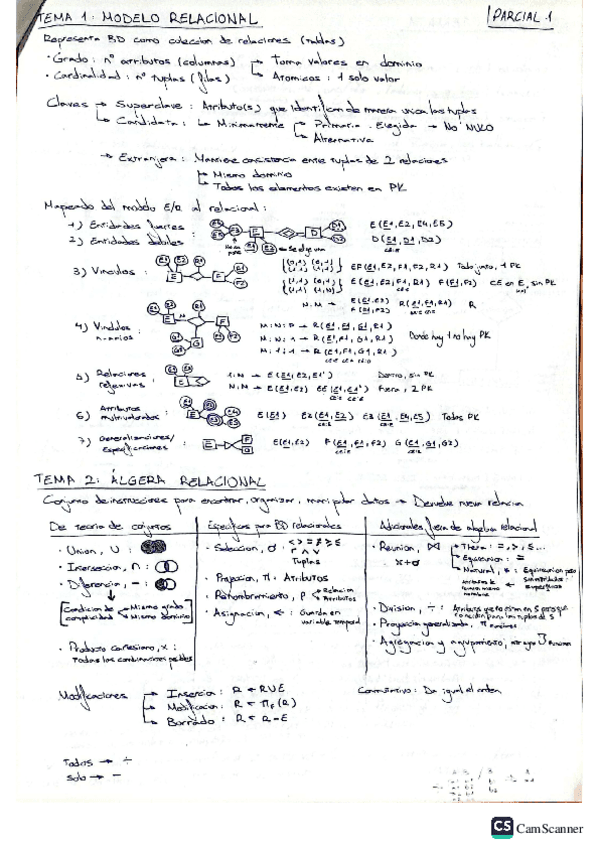 TEMA 1: MODELO RELACIONAL
PARCIAL 1
Representa BD como colección de relaciones (tablas)
· Grado: nº atributos (columnas) → Toma valores en dominio
· Cardinalidad: nº tuplas (filas) → Atomicos: 1 solo valor
Claves → Superclave: Atributo(s) que identifican de manera unica las tuplas
→ Candidata: → Minimamente → Primaria. Elegida → No NULO
→ Alternativa
→ Extranjera: Mantiene consistencia entre tuplas de 2 relaciones
→ Mismo dominio
→ Todos los elementos existen en PK
Mapeando del modelo E/R al relacional:
1) Entidades fuertes : E(E1, E2, E4, E5)
2) Entidades debiles : D(E1, D1, D2)
3) Vinculos : EF(E1, E2, F1, F2, R1) Todo junto, 1 PK
E(E1, E2, F1, R1) F(F1, F2) CE en E, sin PK
N:M → E(E1, E2) F(F1, F2) R(E1, F1, R1)
4) Vinculos n-arios : M:N:P → R(E1, F1, G1, R1)
M:N:1 → R(E1, F1, G1, R1) Donde hay 1 no hay PK
M:1:1 → R(E1, F1, G1, R1)
5) Relaciones reflexivas : 1:N → E(E1, E2, E1') Dentro, sin PK
N:M → E(E1, E2) EE(E1, E1') Fuera, 2 PK
6) Atributos multivalorados : E(E1) E2(E1, E2) E3(E1, E4, E5) Todos PK
7) Generalizaciones/ Especificaciones : E(E1, E2) F(E1, F1, F2) G(E1, G1, G2)
TEMA 2: ÁLGERA RELACIONAL
Conjunto de instrucciones para encontrar, organizar, manipular datos → Devuelve nueva relacion
De teoria de conjuntos
· Union, ∪ :
· Interseccion, ∩ :
· Diferencia, - :
Condicion de compatibilidad → Mismo grado
→ Mismo dominio
· Producto cartesiano, x :
Todas las combinaciones posibles
Especificas para BD relacionales
· Seleccion, σ : < > = ≠ ≥ ≤
Tuplas
· Proyeccion, π : Atributos
· Renombramiento, ρ → Relacion
→ Atributos
· Asignacion, ← : Guarda en variable temporal
Adicionales fuera de algebra relacional
· Reunion, ⋈ → Theta: =, >, ≤...
x + σ → Equireunion: =
→ Natural, * : Equireunion
· Division, ÷ :
· Proyeccion generalizada, π
· Agregacion y agrupamiento,
Modificaciones → Insercion: R ← R∪E
→ Modificacion: R ← π (R)
→ Borrado: R ← R - E
Conmutativo: Da igual el orden
Todos → ÷
Solo → -
CS CamScanner